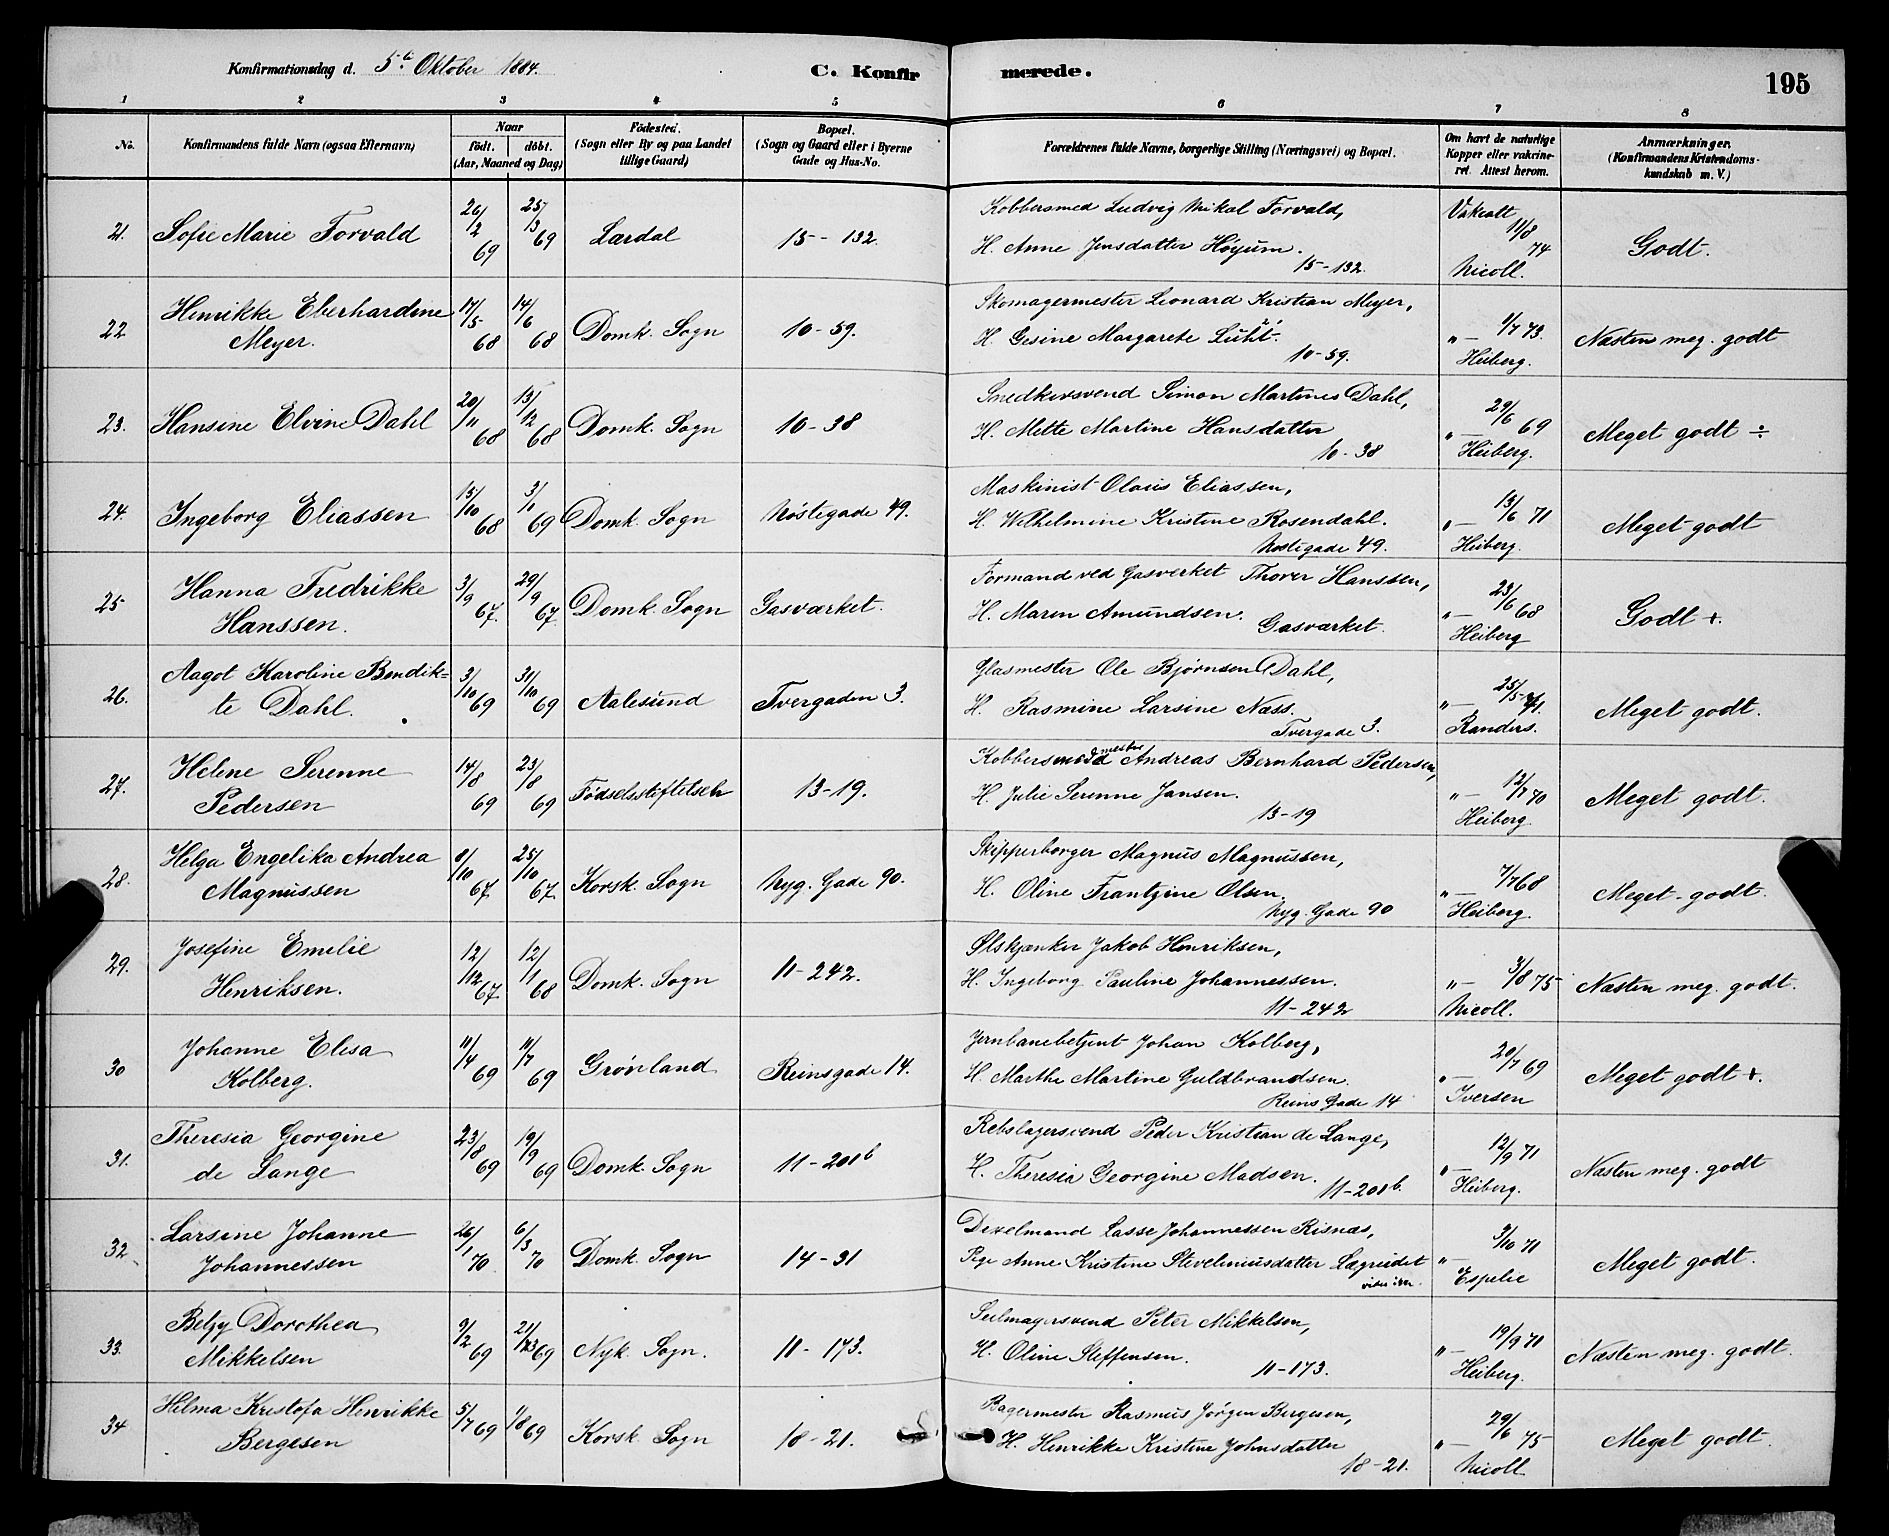 Konfirmationsdag d. 5te Oktober 1884.
C. Konfirmerede.
195
1 2 3 4 5 6 7 8
No.
Konfirmandens fulde Navn (ogsaa Efternavn)
Naar
födt. döbt.
(Aar, Maaned og Dag)
Födested.
(Sogn eller By og paa Landet
tillige Gaard)
Bopæl.
(Sogn og Gaard eller i Byerne
Gade og Hus-No.
Forældrenes fulde Navne, borgerlige Stilling (Næringsvei) og Bopæl.
Om havt de naturlige
Kopper eller vakcine-
ret. Attest herom.
Anmærkninger.
(Konfirmandens Kristendoms-
kundskab m. V.)
21. Sofie Marie Forvald 26/2 69 25/3 69 Lærdal 15-132.
Kobbersmed Ludvig Mikal Forvald,
H. Anne Jensdatter Høyum.
15-132.
Vakcatt 11/8 74
Nicoll.
Godt.
22 Henrikke Eberhardine
Meyer.
17/5 68 14/6 68 Domk. Sogn 10-59.
Skomagermester Leonard Kristian Meyer,
H. Gesine Margarete Lüht.
10-59.
"— 1/7 73.
Heiberg.
Næsten meg. godt
23. Hansine Elvine Dahl 20/11 68 13/12 68 Domk. Sogn 10-38
Snedkersvend Simon Martines Dahl,
H. Mette Martine Hansdatter
10-38
"— 29/6 69
Heiberg.
Meget godt ÷
24. Ingeborg Eliassen 15/10 68 3/1 69 Domk. Sogn Nöstegade 49.
Maskinist Olaus Eliassen,
H. Wilhelmine Kristine Rosendahl.
Nöstegade 49.
"— 13/6 71
Heiberg.
Meget godt
25 Hanna Fredrikke
Hanssen.
3/9 67. 29/9 67. Domk. Sogn Gasværket.
Formand ved Gasverket Thorer Hanssen,
H. Maren Amundsen.
Gasværket.
"— 23/6 68
Heiberg
Godt +.
26. Aagot Karoline Bendik=
te Dahl.
3/10 69 31/10 69 Aalesund Tvergaden 3.
Glasmester Ole Bjørnsen Dahl,
H. Rasmine Larsine Næss.
Tvergade 3.
"— 25/5 71.
Randers.
Meget godt.
27. Helene Serenne
Pedersen
14/8 69 23/8 69 Födselsstiftelsen 13-19.
Kobbersmedmester Andreas Bernhard Pedersen,
H. Julie Serenne Jansen.
13-19
"— 12/7 70
Heiberg.
Meget godt.
28. Helga Engelika Andrea
Magnussen
8/10 67. 25/10 67. Korsk. Sogn Nyg. Gade 90.
Skipperborger Magnus Magnussen,
H. Oline Frantzine Olsen.
Nyg. Gade 90
"— 7/7 68
Heiberg.
Meget godt.
29. Josefine Emilie
Henriksen.
12/12 67. 12/1 68 Domk. Sogn 11-242.
Ølskjænker Jakob Henriksen,
H. Ingeborg Pauline Johannessen.
11-242
"— 3/8 75
Nicoll.
Næsten meg. godt.
30 Johanne Elisa
Kolberg.
11/4 69 11/7 69 Grønland Reinsgade 14.
Jernbanebetjent Johan Kolberg,
H. Marthe Martine Guldbrandsen.
Reins Gade 14
"— 20/7 69
Iversen
Meget godt +.
31. Theresia Georgine
de Lange
23/8 69 19/9 69 Domk. Sogn 11-201b
Rebslagersvend Peder Kristian de Lange,
H. Theresia Georgine Madsen.
11-201b.
"— 12/9 71
Heiberg.
Næsten meg. godt
32. Larsine Johanne
Johannessen
26/1 70. 6/3 70 Domk. Sogn 14-31
Dexelmand Lasse Johannessen Risnæs,
Pige Anne Kristine Steveliniusdatter Lægreidet
"— 9/10 71
Espelie
Meget godt.
33. Betzy Dorothea
Mikkelsen
9/2 69 21/3 69 Nyk. Sogn. 11-173.
Seilmagersvend Peter Mikkelsen,
H. Oline Steffensen.
11-173.
"— 19/9 71
Heiberg.
Næsten meg. godt.
34 Helma Kristofa Henrikke
Bergesen
5/7 69 1/8 69 Korsk. Sogn 18-21.
Bagermester Rasmus Jörgen Bergesen,
H. Henrikke Kristine Johnsdatter
18-21.
"— 29/6 75
Nicoll
Meget godt.